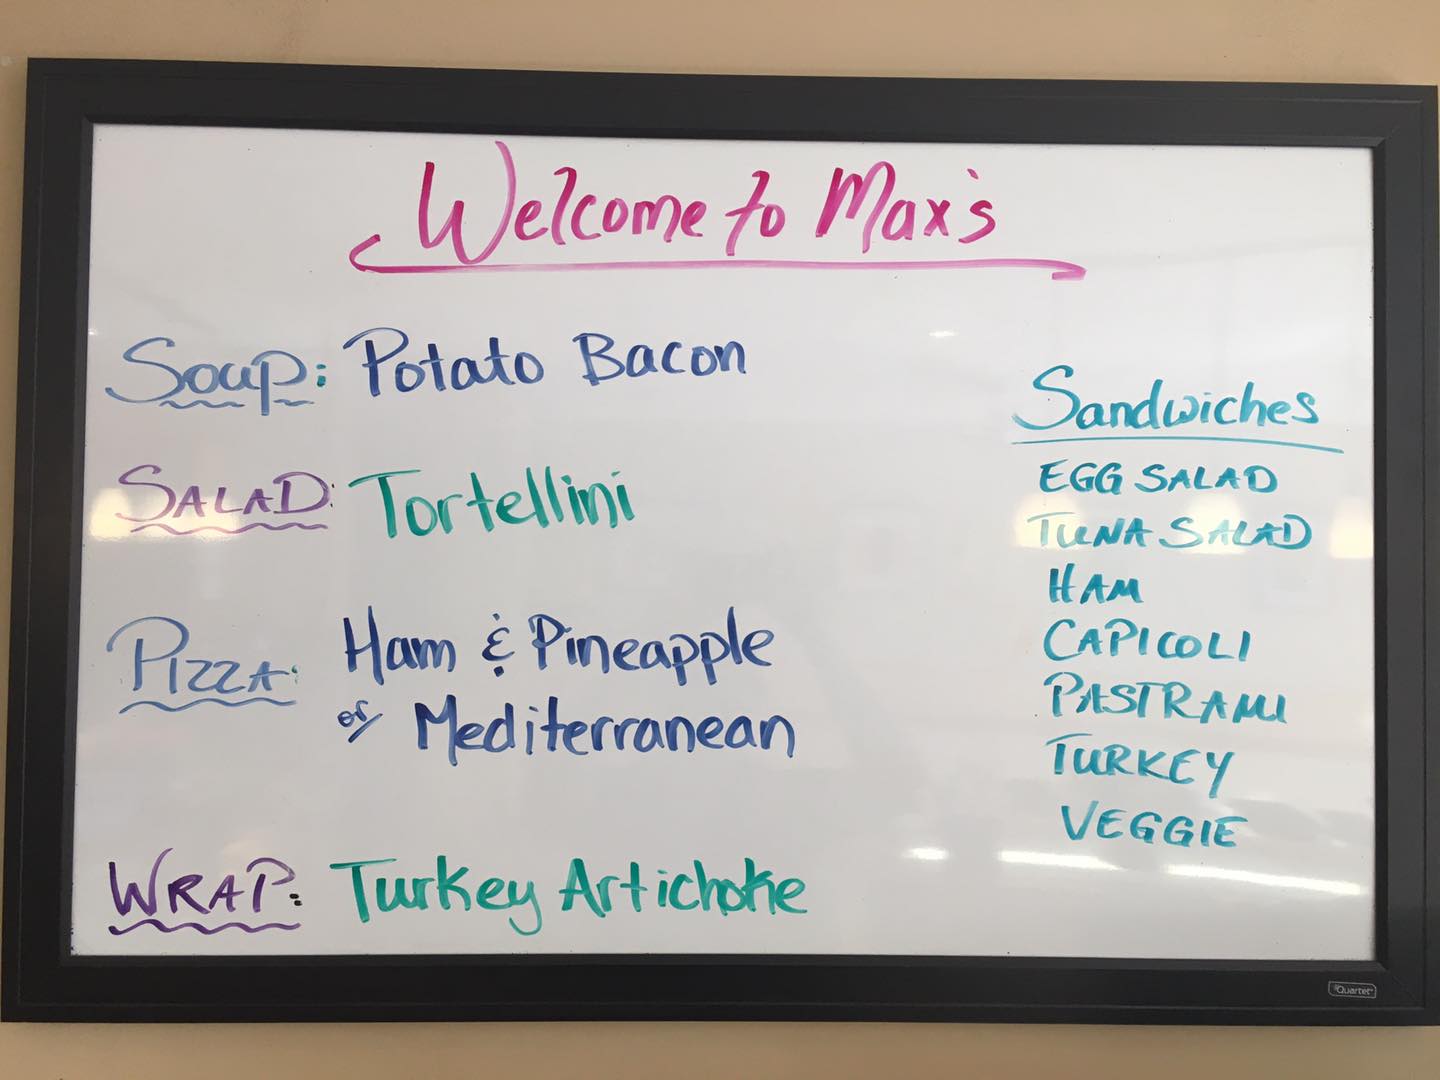 Welcome to Max's
Soup: Potato Bacon
SALAD: Tortellini
PIZZA: Ham & Pineapple
or Mediterranean
WRAP: Turkey Artichoke
Sandwiches
EGG SALAD
TUNA SALAD
HAM
CAPICOLI
PASTRAMI
TURKEY
VEGGIE
Quartet